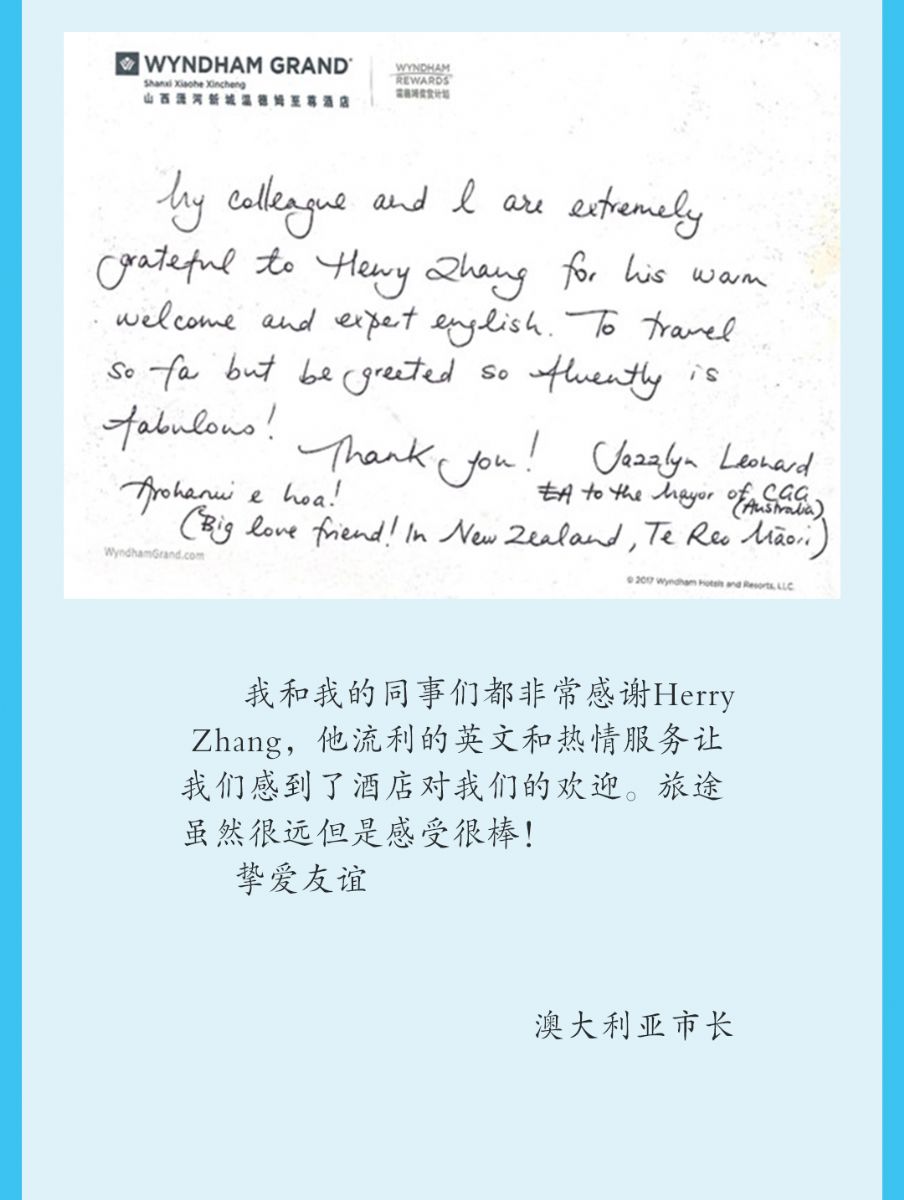 WYNDHAM GRAND
Shanxi Xiaohe Xincheng
山西潇河新城温德姆至尊酒店
WYNDHAM
REWARDS
温德姆奖赏计划
My colleague and I are extremely
grateful to Henry Zhang for his warm
welcome and expert english. To travel
so far but be greeted so fluently is
fabulous!
Thank you!
Jazzlyn Leonard
EA to the Mayor of CGG
(Australia)
Arohanui e hoa!
(Big love friend! In New Zealand, Te Reo Māori)
WyndhamGrand.com
© 2017 Wyndham Hotels and Resorts, LLC.
我和我的同事们都非常感谢Herry
Zhang，他流利的英文和热情服务让
我们感到了酒店对我们的欢迎。旅途
虽然很远但是感受很棒！
挚爱友谊
澳大利亚市长